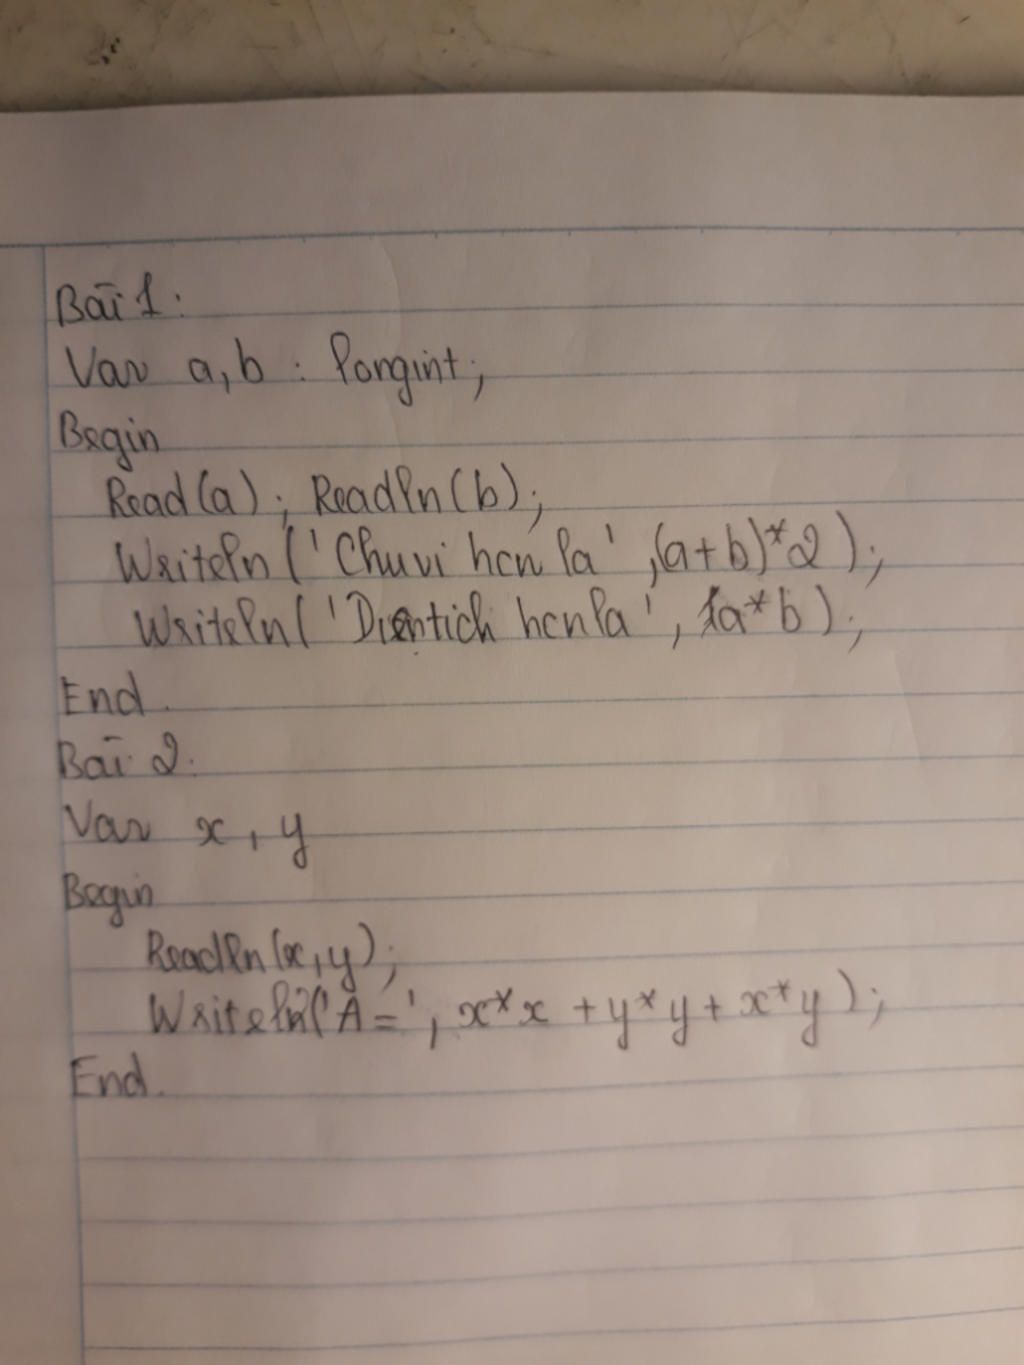 Bài 1:
Var a,b : longint;
Begin
Read(a); Readln(b);
Writeln('Chuvi hcn la',(a+b)*2);
Writeln('Dientich hcn la', a*b);
End.
Bài 2:
Var x, y
Begin
Readln(x,y);
Writeln('A=', x*x + y*y + x*y);
End.